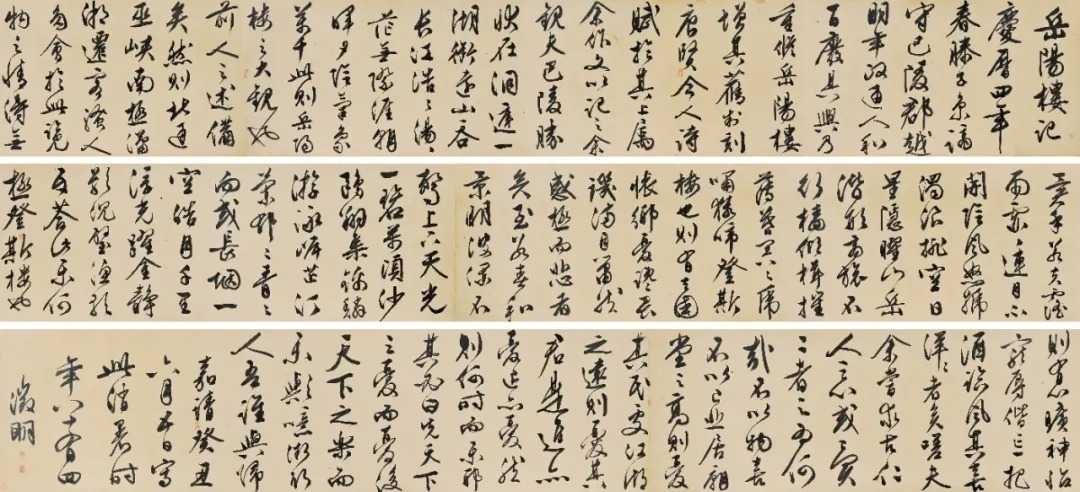 岳陽樓記
慶曆四年
春滕子京謫
守巴陵郡越
明年政通人和
百廢具興乃
重修岳陽樓
增其舊制刻
唐賢今人詩
賦於其上屬
余作文以記之余
觀夫巴陵勝
狀在洞庭一
湖銜遠山吞
長江浩〻湯〻
茫無際涯朝
暉夕陰氣象
萬千此則岳陽
樓之大觀也
前人之述備
矣然則北通
巫峽南極瀟
湘遷客騷人
多會於此覽
物之情得無
異乎若夫霪
雨霏〻連月不
開陰風怒號
濁浪排空日
星隱曜山岳
潛形商旅不
行檣傾楫摧
薄暮冥〻虎
嘯猿啼登斯
樓也則有去國
懷鄉憂讒畏
譏滿目蕭然
感極而悲者
矣至若春和
景明波瀾不
驚上下天光
一碧萬頃沙
鷗翔集錦鱗
游泳岸芷汀
蘭郁〻青〻
而或長烟一
空皓月千里
浮光躍金靜
影沉璧漁歌
互荅此樂何
極登斯樓也
則有心曠神怡
寵辱偕忘把
酒臨風其喜
洋〻者矣嗟夫
余嘗求古仁
人之心或異
二者之為何
哉不以物喜
不以己悲居廟
堂之高則憂
其民處江湖
之遠則憂其
君是進亦
憂退亦憂然
則何時而樂耶
其必曰先天下
之憂而憂後
天下之樂而
樂歟噫微斯
人吾誰與歸
嘉靖癸丑
六月日寫
此消暑時
年八十有四
徵明